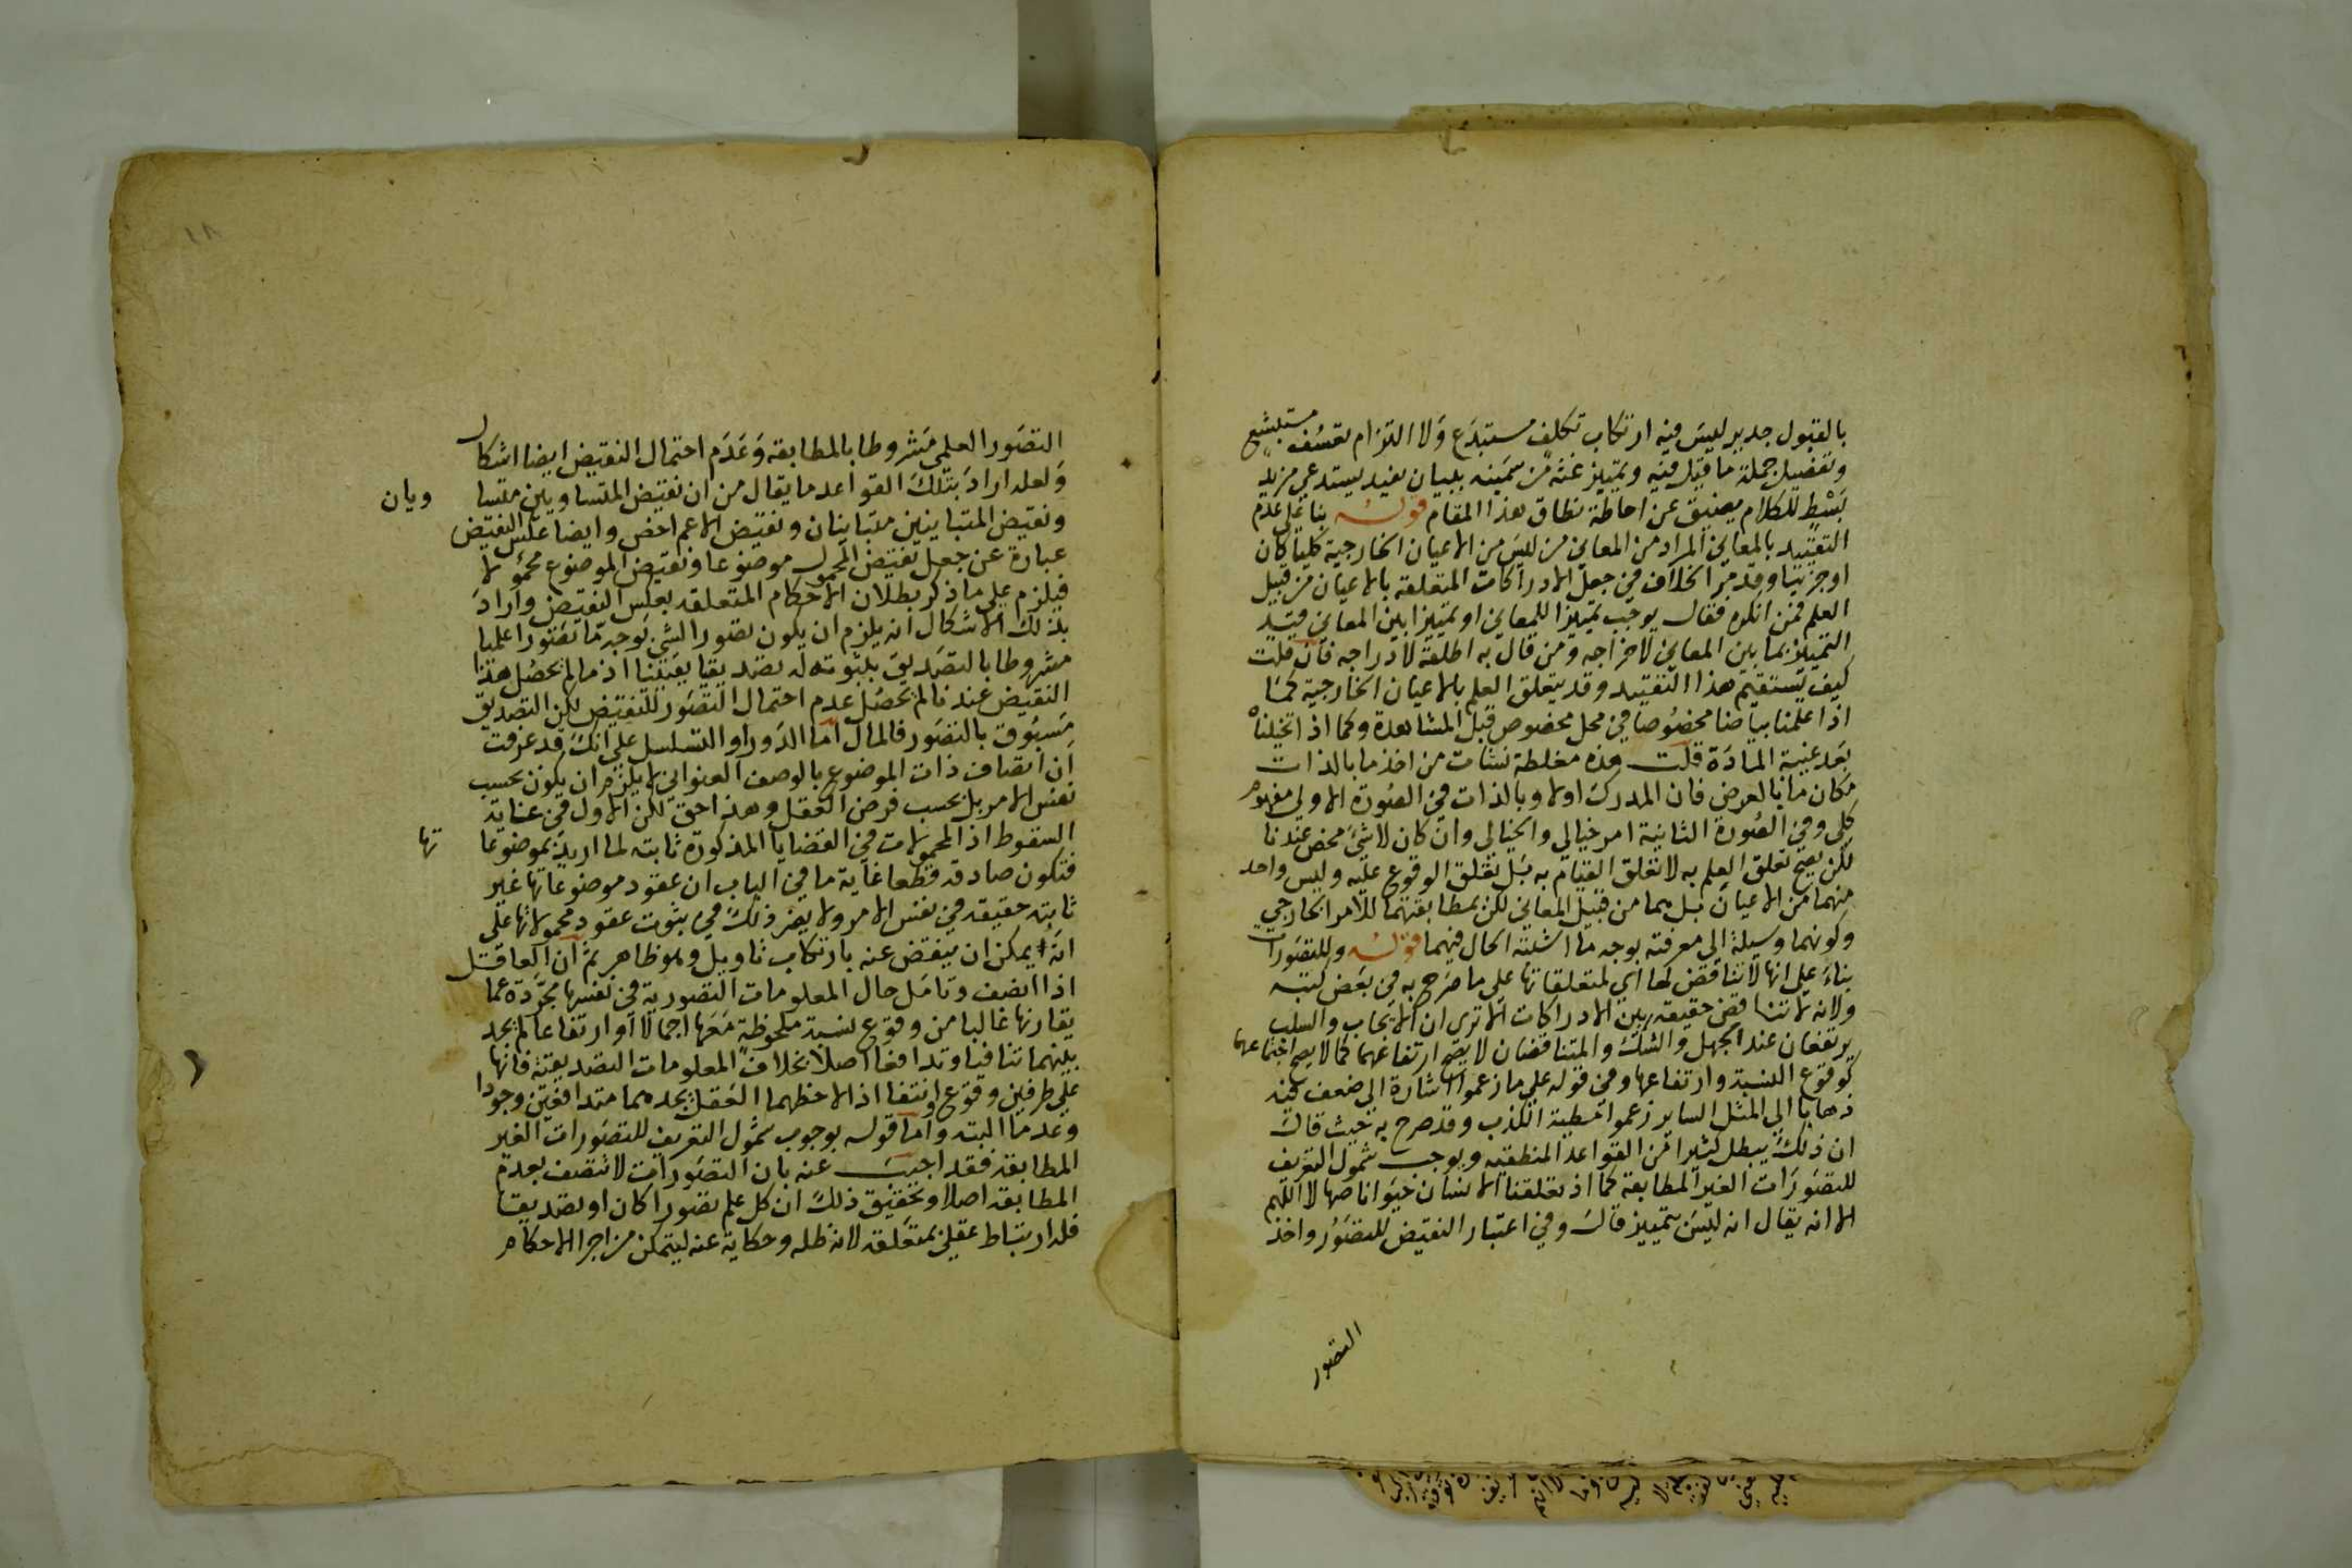 بالقبول جدير ليس فيه ارتكاب تكلف مستبدع ولا التزام تعسف مستبشع
وتفصيل جملة ما قيل فيه وتمييز غثه من سمينه ببيان يفيد يستدعي مزيد
بسط للكلام يضيق عن احاطة نطاق هذا المقام قوله بنا على عدم
التقييد بالمعاني المراد من المعاني من ليس من الاعيان الخارجية كليا كان
او جزئيا وقد مر الخلاف في جعل الادراكات المتعلقة بالاعيان من قبيل
العلم فمن انكره فقال يوجب تمييزا للمعاني او تمييزا بين المعاني قيد
التمييز بما بين المعاني لاخراجه ومن قال به اطلقه لادراجه فان قلت
كيف يستقيم هذا التقييد وقد يتعلق العلم بالاعيان الخارجية كما
اذا علمنا بياضا مخصوصا في محل مخصوص قبل المشاهدة وكما اذا تخيلناه
بعد غيبة المادة قلت هذه مغلطة نشات من اخذ ما بالذات
مكان ما بالعرض فان المدرك اولا وبالذات في الصورة الاولى مفهوم
كلي وفي الصورة الثانية امر خيالي والخيالي وان كان لا شيء محض عندنا
لكن يصح تعلق العلم به لا تعلق القيام به بل تعلق الوقوع عليه وليس واحد
منهما من الاعيان بل هما من قبيل المعاني لكن بمطابقتهما للامر الخارجي
وكونهما وسيلة الى معرفته بوجه ما اشتبه الحال فيهما قوله وللتصورات
بناء على انها لا تناقض لها اي لمتعلقاتها على ما صرح به في بعض كتبه
ولانه لا تناقض حقيقه بين الادراكات الا ترى ان الايجاب والسلب
يرتفعان عند الجهل والشك والمتناقضان لا يصح ارتفاعهما كما لا يصح اجتماعهما
كوقوع النسبة وارتفاعها وفي قوله على ما زعموا اشارة الى ضعف فيه
ذهابا الى المثل الساير زعموا مطية الكذب وقد صرح به حيث قال
ان ذلك يبطل كثيرا من القواعد المنطقيه ويوجب شمول التعريف
للتصورات الغير المطابقة كما اذا تعلقنا الانسان حيوانا صاهلا اللهم
الا انه يقال انه ليس بتمييز قال وفي اعتبار النقيض للتصور واخذ
التصور
١٨
التصور العلمي مشروطا بالمطابقه وعدم احتمال النقيض ايضا اشكال
ولعله اراد بتلك القواعد ما يقال من ان نقيض المتساويين متسا ويان
ونقيض المتباينين متباينان ونقيض الاعم اخص وايضا عكس النقيض
عبارة عن جعل نقيض المحمول موضوعا ونقيض الموضوع محمولا
فيلزم على ما ذكر بطلان الاحكام المتعلقه بعكس النقيض واراد
بذلك الاشكال انه يلزم ان يكون تصور الشي بوجه ما تصورا علميا
مشروطا بالتصديق بثبوته له تصديقا يقينا اذ ما لم يحصل هذا
النقيض عندنا لم يحصل عدم احتمال التصور للنقيض لكن التصديق
مسبوق بالتصور فالمال اما الدور او التسلسل على انك قد عرفت
ان اتصاف ذات الموضوع بالوصف العنواني لا يلزم ان يكون بحسب
نفس الامر بل بحسب فرض العقل وهذا حق لكن الاول في غاية
السقوط اذ المحمولات في القضايا المذكورة ثابته لما اريد بموضوعا تها
فتكون صادقه قطعا غاية ما في الباب ان عقود موضوعاتها غير
ثابته حقيقه في نفس الامر ولا يضر ذلك في ثبوت عقود محمولاتها على
انه يمكن ان يتفصى عنه بارتكاب تاويل وهو ظاهر ثم ان العاقل
اذا انصف وتامل حال المعلومات التصورية في نفسها مجردة عما
يقارنها غالبا من وقوع نسبة ملحوظة معها اجمالا او ارتفاعا لم يجد
بينهما تنافيا وتدافعا اصلا بخلاف المعلومات التصديقية فانها
على طرفين وقوع وانتفا اذ لاحظهما العقل يجدهما متدافعين وجودا
وعدما البته واما قوله بوجوب شمول التعريف للتصورات الغير
المطابقة فقد اجيب عنه بان التصورات لا تتصف بعدم
المطابقه اصلا وتحقيق ذلك ان كل علم تصورا كان او تصديقا
فله ارتباط عقلي بمتعلقه لانه ظله وحكاية عنه ليتمكن من اجرا الاحكام